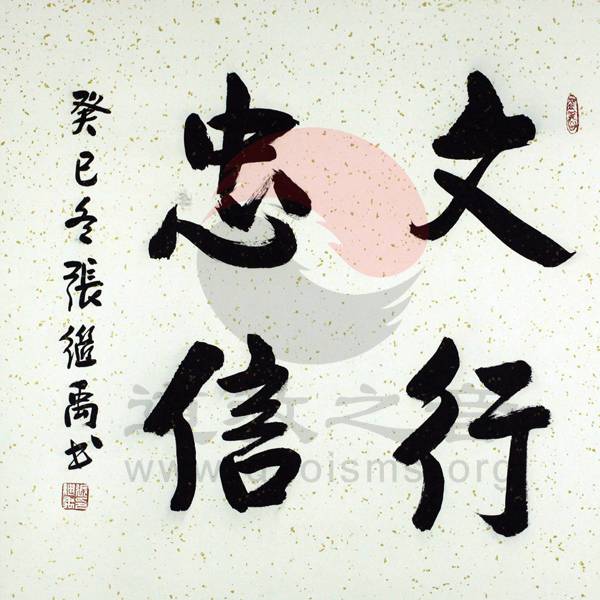 文行
忠信
癸巳冬張繼禹书
道教之音
www.daoisms.org